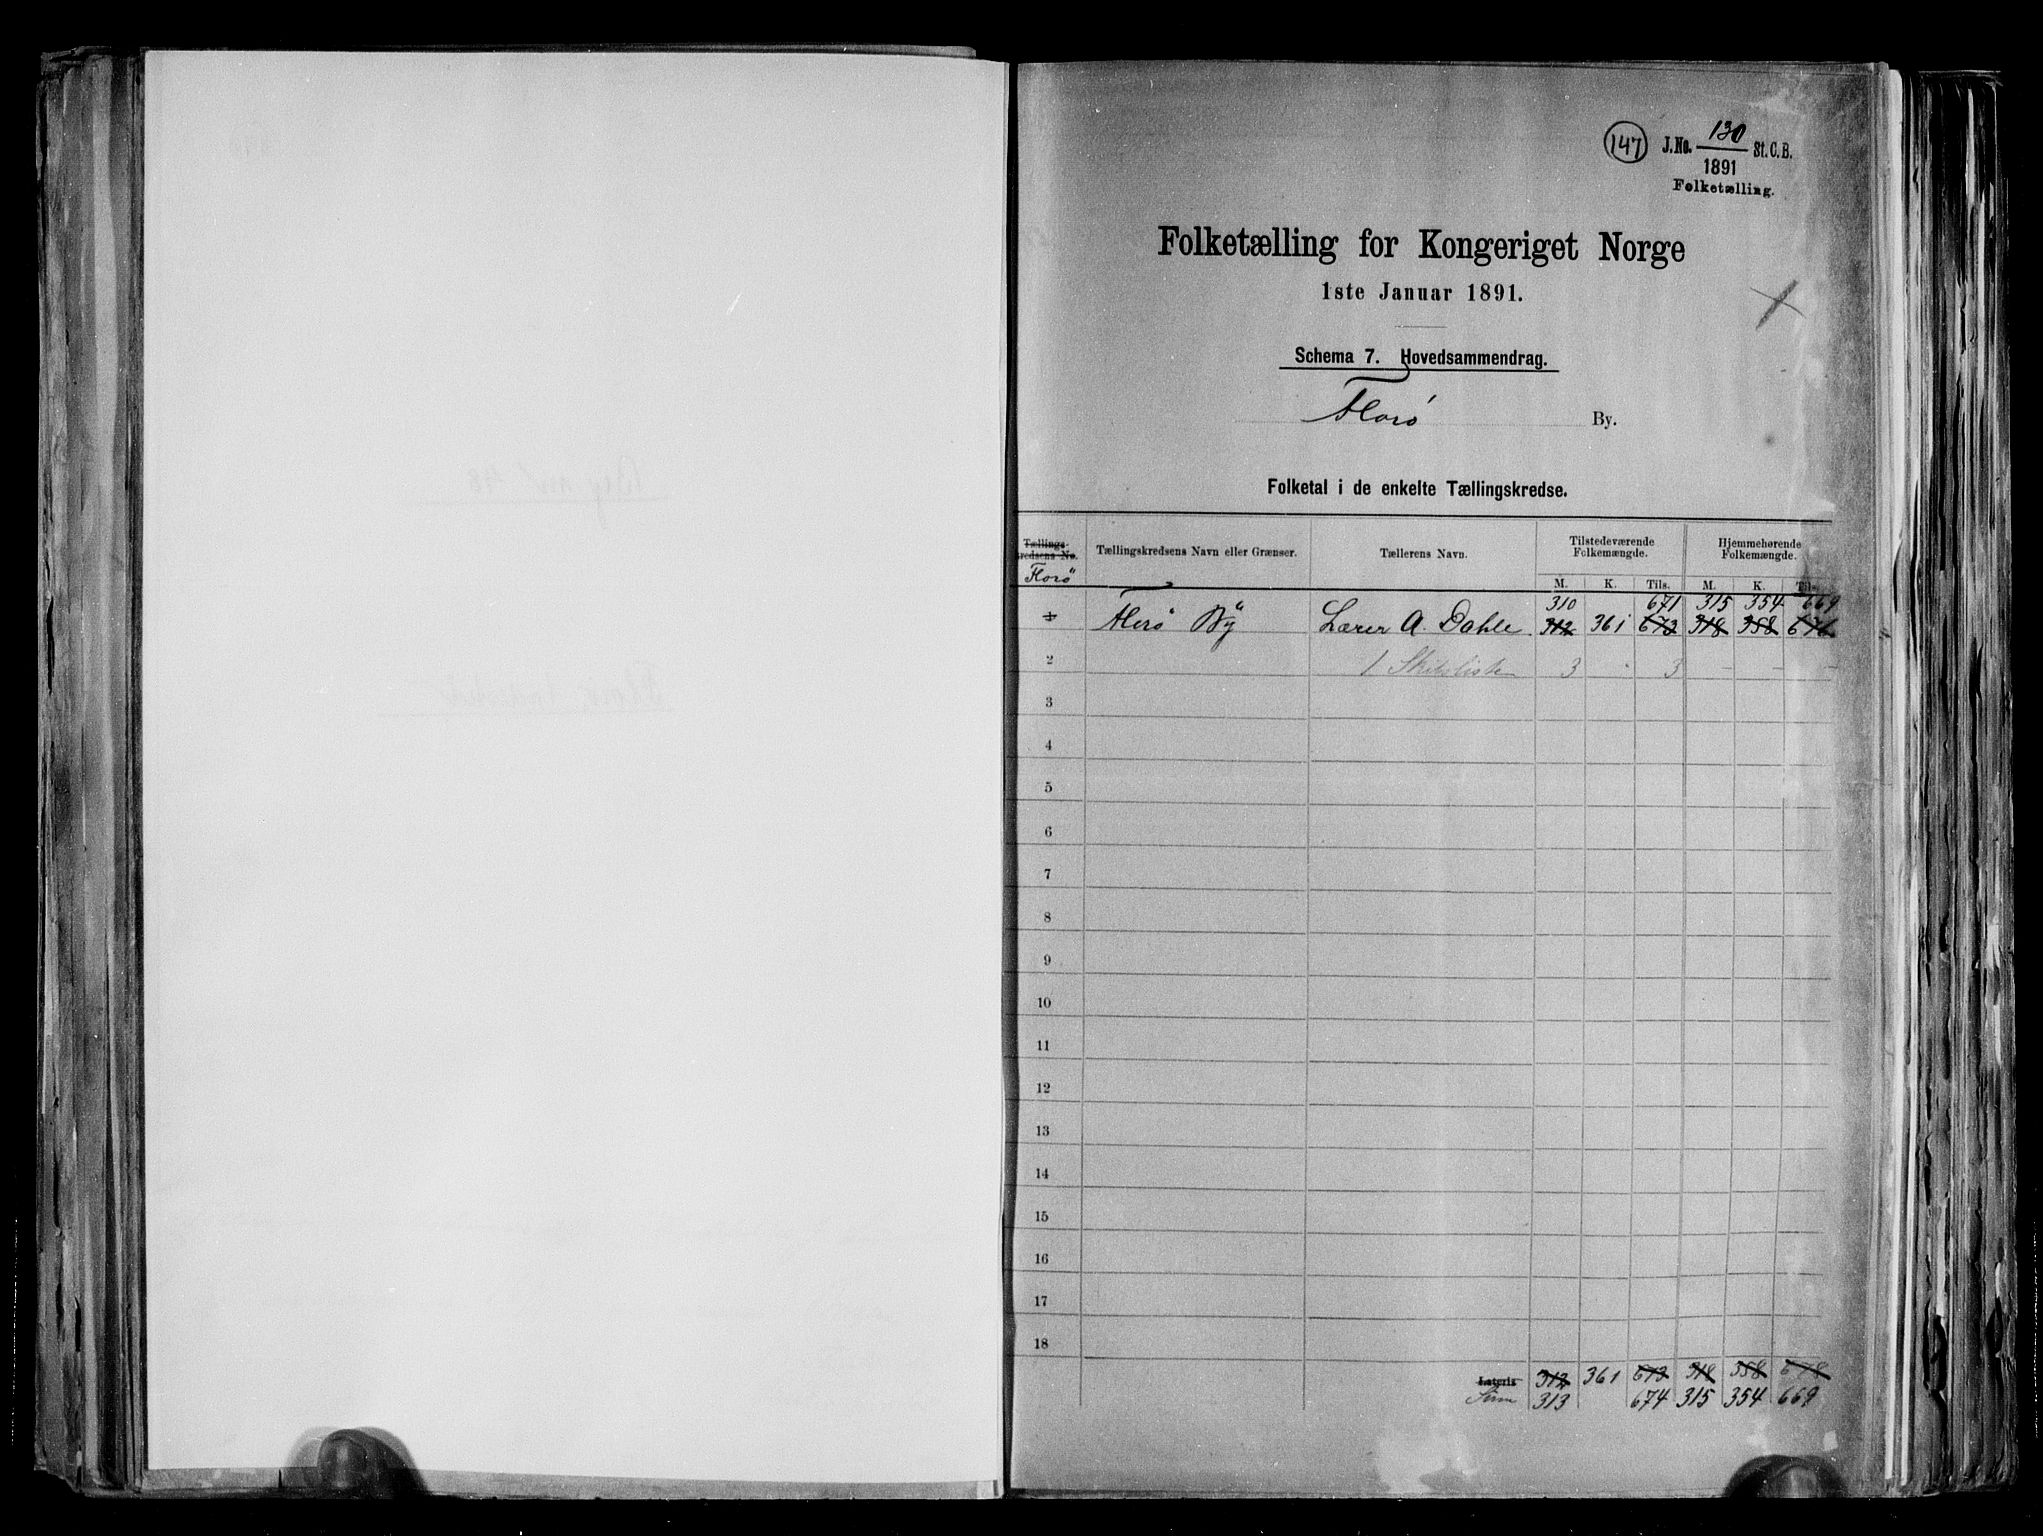 147 J.No. 130 St. C. B.
1891
Folketælling.
Folketælling for Kongeriget Norge
1ste Januar 1891.
Schema 7. Hovedsammendrag.
Florö By.
Folketal i de enkelte Tællingskredse.
Tællings-kredsens No. Tællingskredsens Navn eller Grænser. Tællerens Navn. Tilstedeværende Folkemængde. Hjemmehørende Folkemængde.
Florö M. K. Tils. M. K. Tils.
310 671 315 354 669
1 Florö By Lærer A. Dahle. 312 361 673 318 358 676
2 1 Skibsliste 3 - 3 - - -
3
4
5
6
7
8
9
10
11
12
13
14
15
16
17
18
Lateris 312 361 673 318 358 676
Sum 313 674 315 354 669